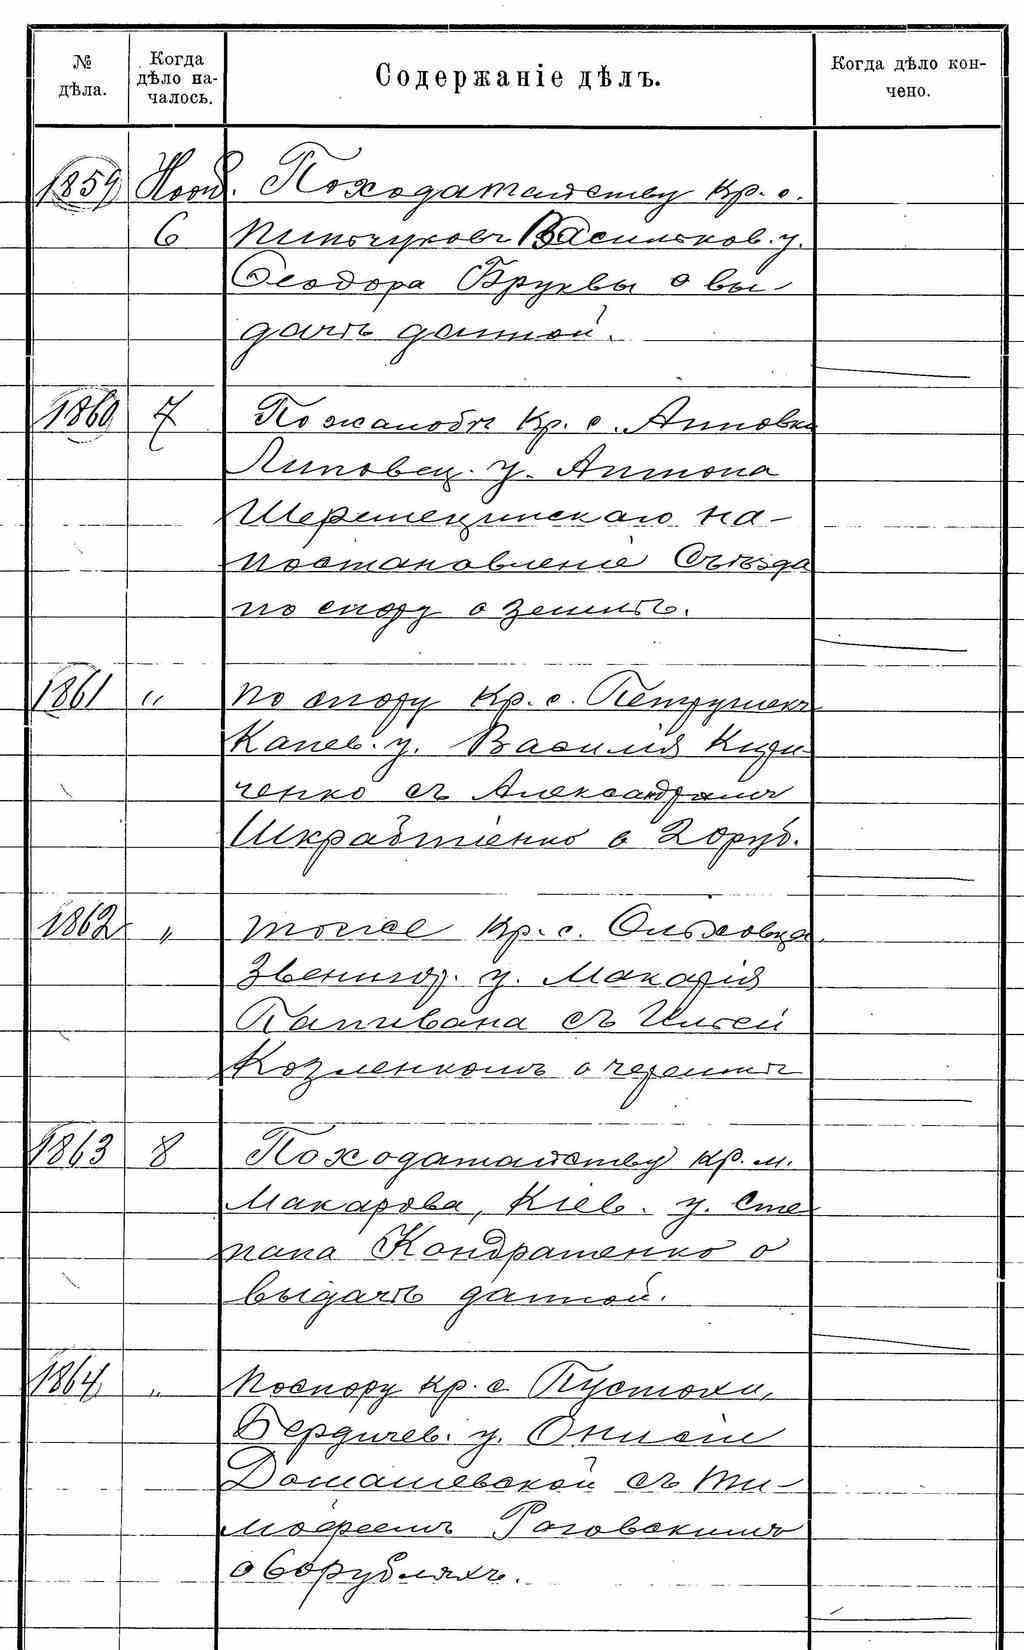 № дѣла.
Когда дѣло на-
чалось.
Содержаніе дѣлъ.
Когда дѣло кон-
чено.
1859 Нояб. По ходатайству кр. с.
6 Пинчуковъ Васильков. у.
Ѳеодора Бруквы о вы-
дачѣ данной.
1860 7 По жалобѣ кр. с.
Липовец. у. Антона
Шереметинскаго на
постановленіе Съѣзда
по спору о землѣ.
1861 " По спору кр. с.
Канев. у. Василія Кири-
ченко съ Александромъ
о 20 руб.
1862 " тоже кр. с. Ольховца,
Звенигор. у. Макарія
съ Ильей
Козленкомъ о
1863 8 По ходатайству кр. м.
Макарова, Кіев. у. Сте
пана Кондратенко о
выдачѣ данной.
1864 " По спору кр. с. Пустохи,
Бердичев. у. Онисіи
Домашевской съ Ти-
мофеемъ Роговскимъ
о 60 рубляхъ.